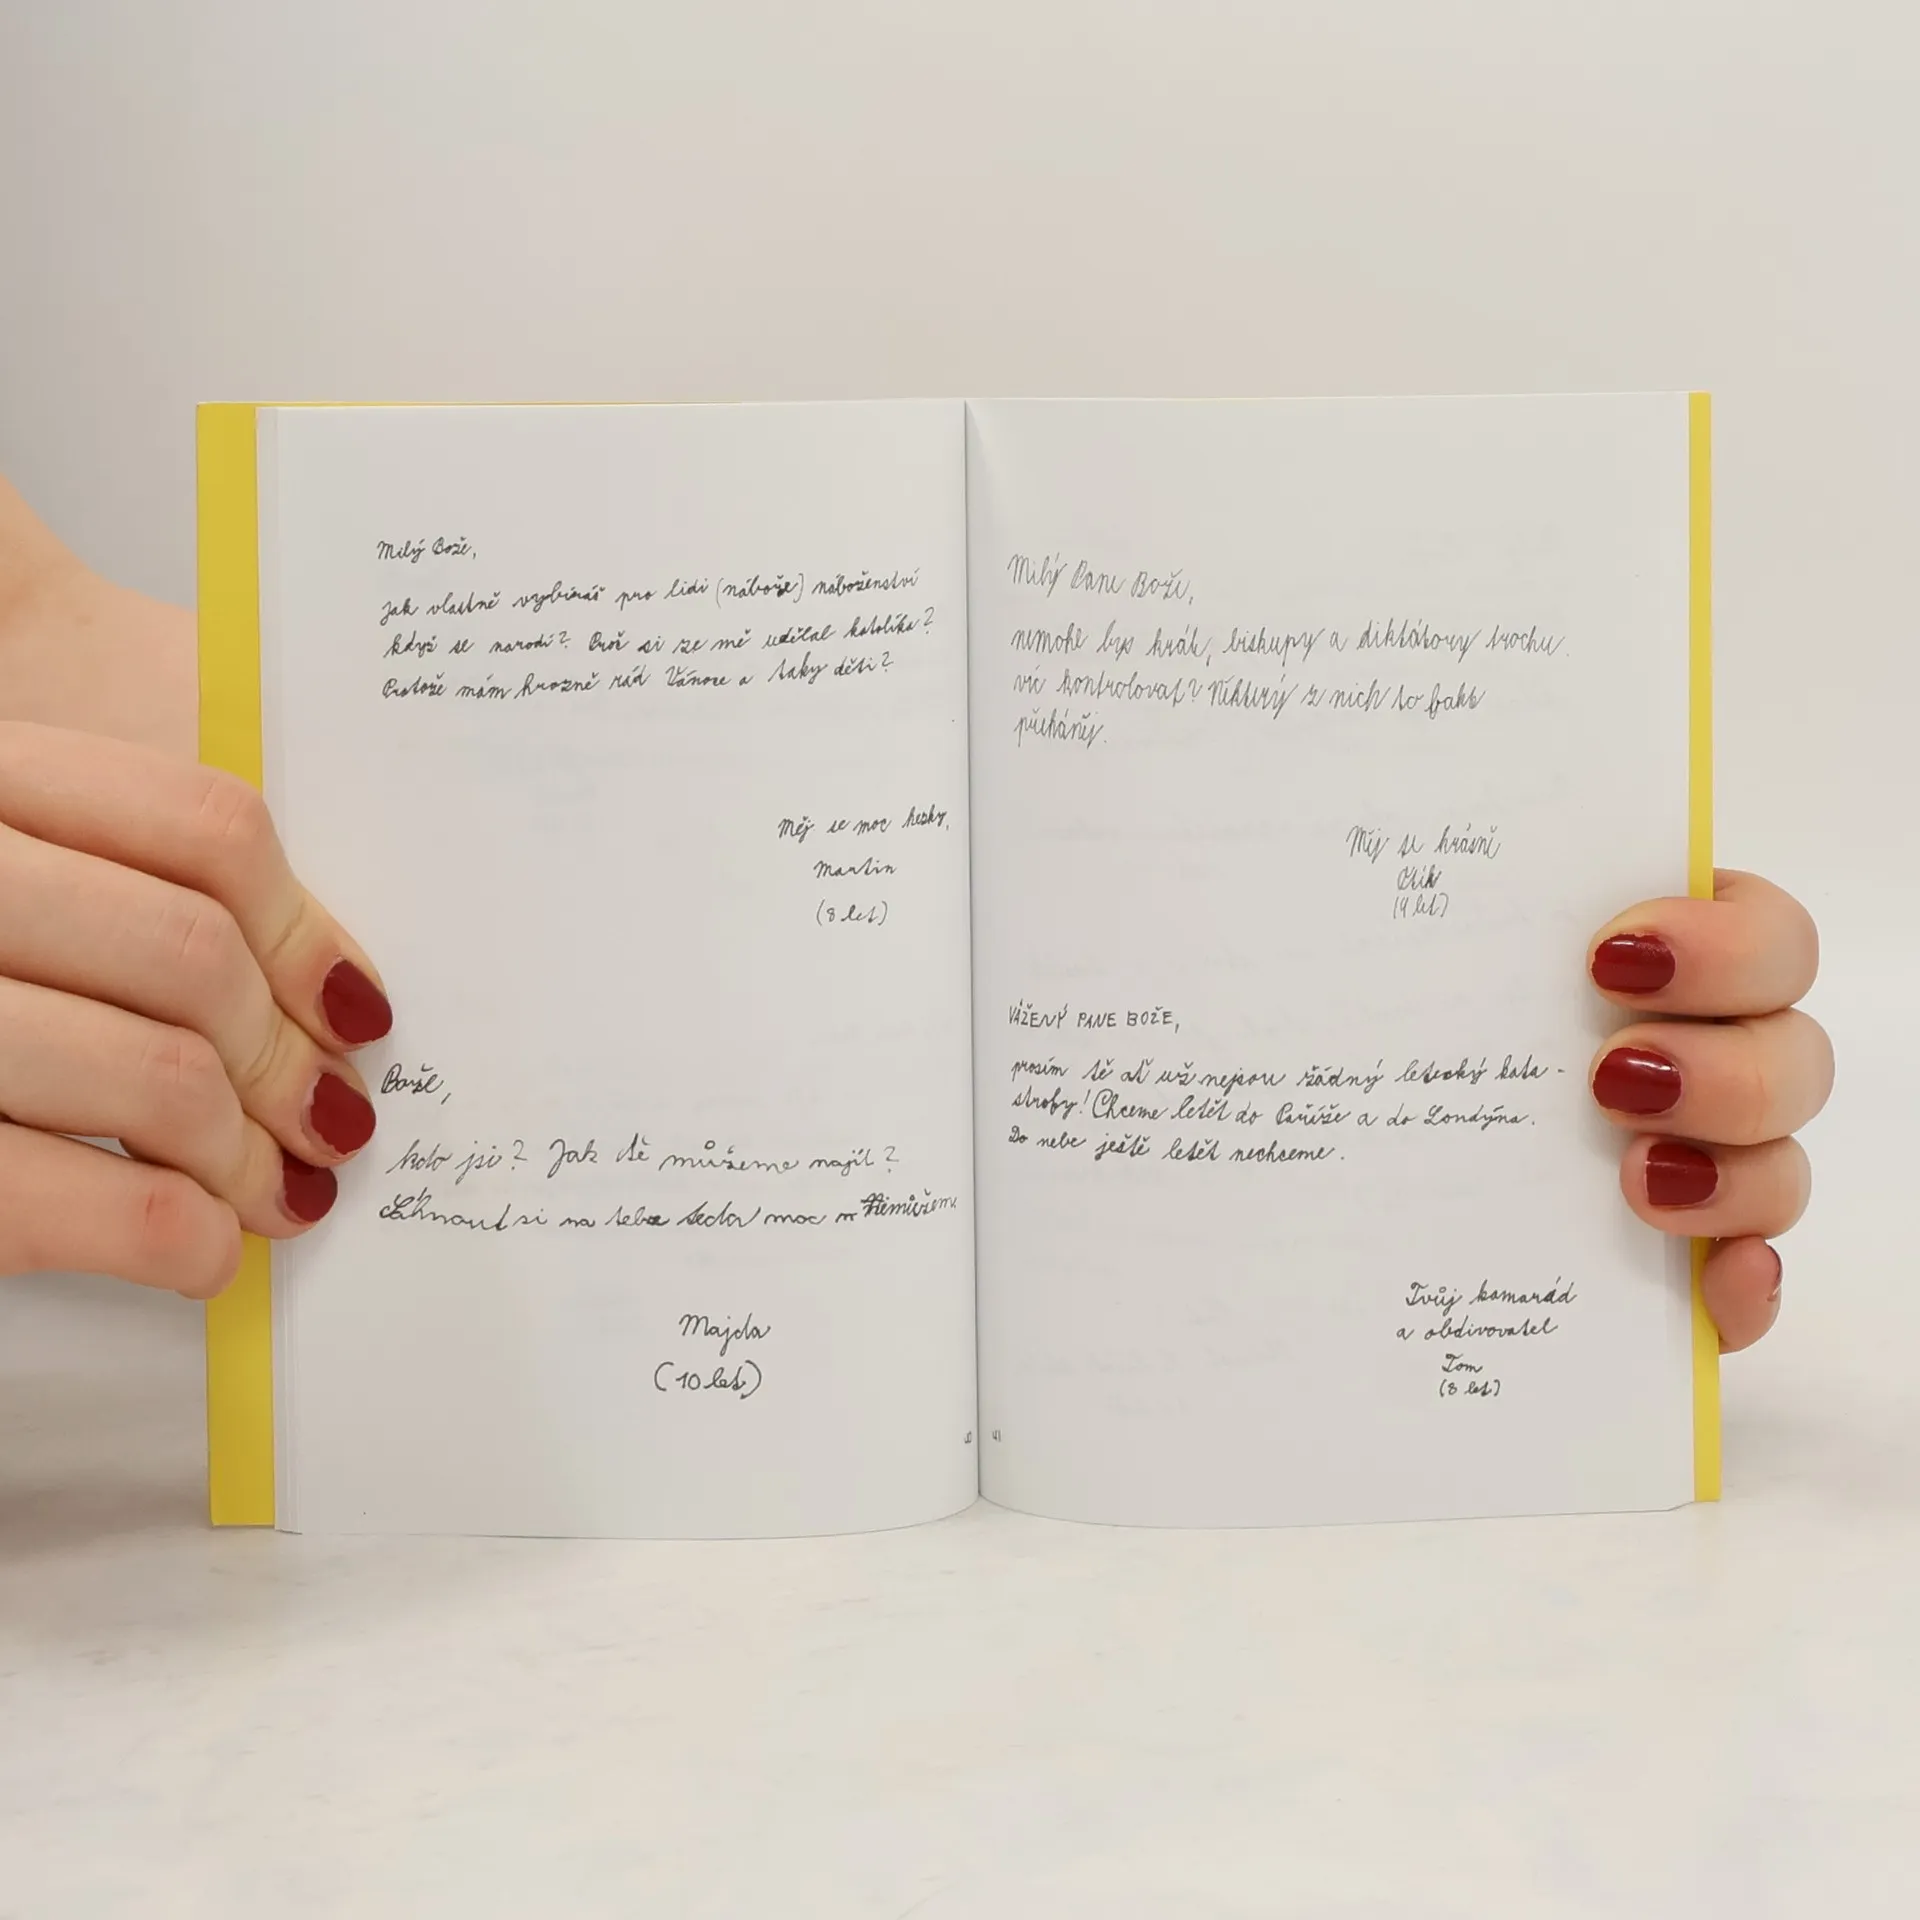 Milý Bože,
Jak vlastně vybíráš pro lidi (nábože) náboženství
když se narodí? Proč si ze mě udělal katolíka?
Protože mám hrozně rád Vánoce a taky děti?
Měj se moc hezky,
Martin
(8 let)
Bože,
kdo jsi? Jak tě můžeme najít?
Sáhnout si na tebe teda moc nemůžem.
Majda
(10 let)
Milý Pane Bože,
nemohl bys krále, biskupy a diktátory trochu
víc kontrolovat? Některý z nich to fakt
přeháněj.
Měj se krásně
(9 let)
VÁŽENÝ PANE BOŽE,
prosím tě ať už nejsou žádný letecký kata-
strofy! Chceme letět do Paříže a do Londýna.
Do nebe ještě letět nechceme.
Tvůj kamarád
a obdivovatel
Tom
(8 let)
41